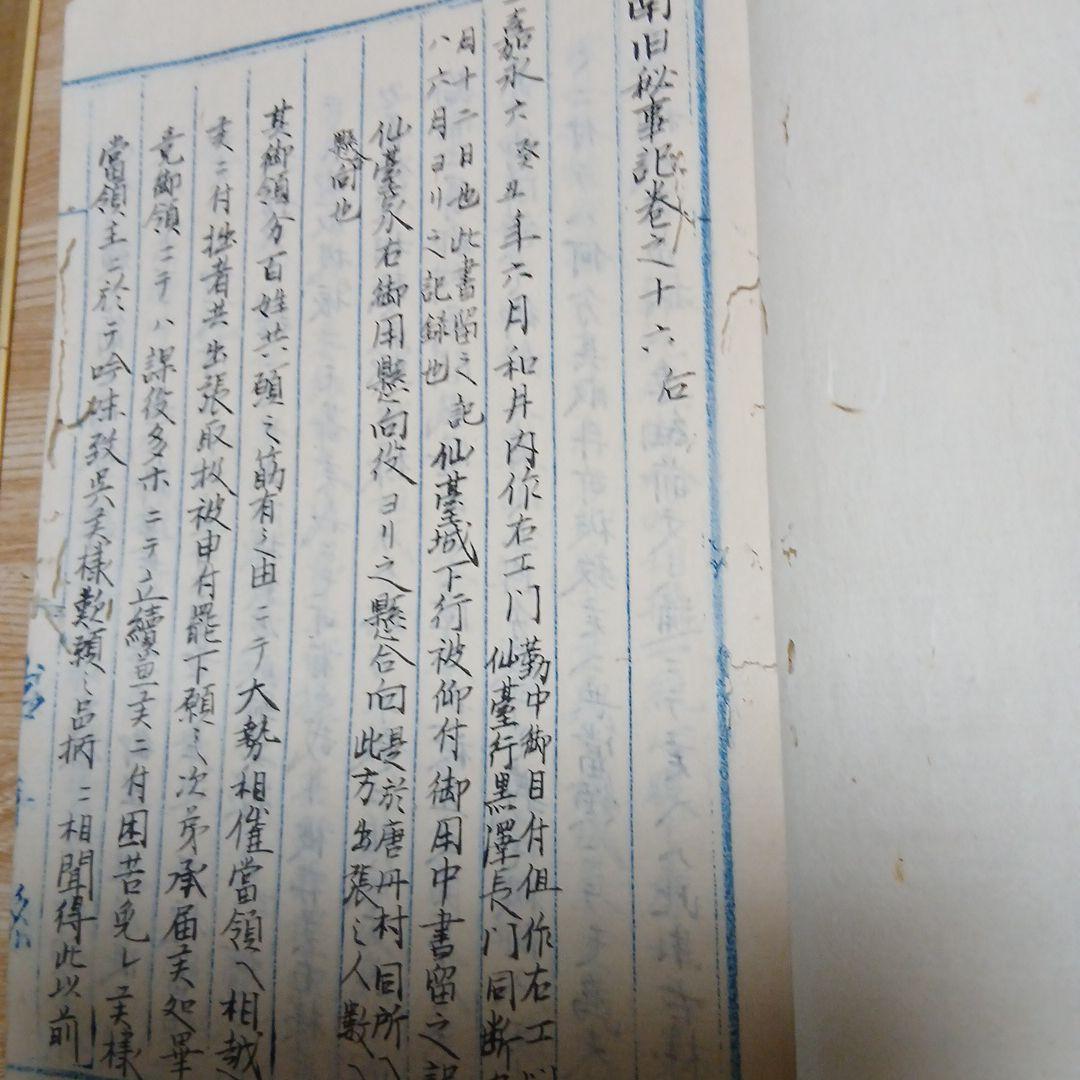 旧秘事記巻之十六
嘉永六癸丑年六月和井内作右エ門勤中御目付但作右エ
仙臺行黒澤長門同断
月十二日也此書留之記仙臺城下行被仰付御用中書留之記
八六月ヨリ之記録也
仙臺家右御用懸向役ヨリ之懸合向是於唐丹村同所ヘ
此方出張之人数ヘ
懸向也
其御領分百姓共願之筋有之由ニテ大勢相催當領ヘ相越
ニ付拙者共出張取扱被申付罷下願之次第承届処畢
竟御領ニテハ課役多ホニテ立續兼ニ付困苦免レ様
當領主ニ於テ吟味致呉様歎願之品柄ニ相聞得此以前